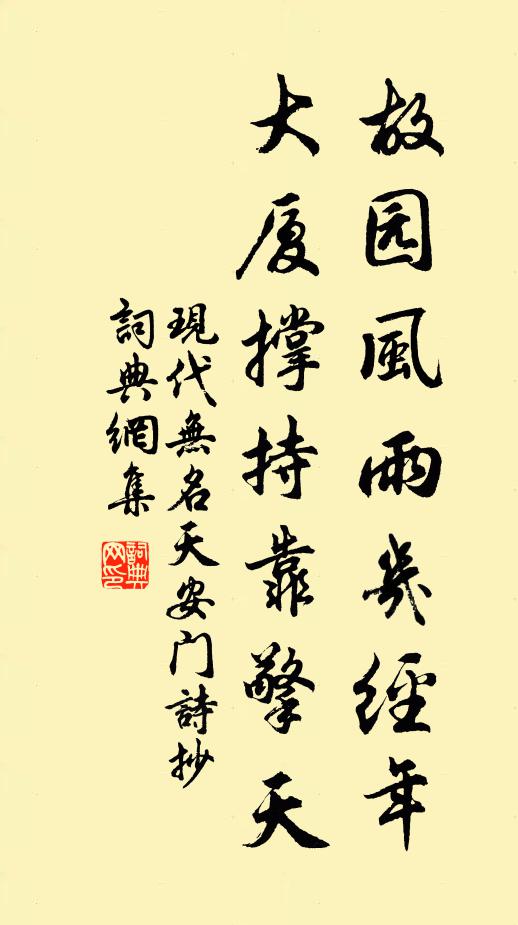 故园風雨幾經年
大厦撑持靠擎天
現代無名天安門詩抄
詞典網集
詞典
网印